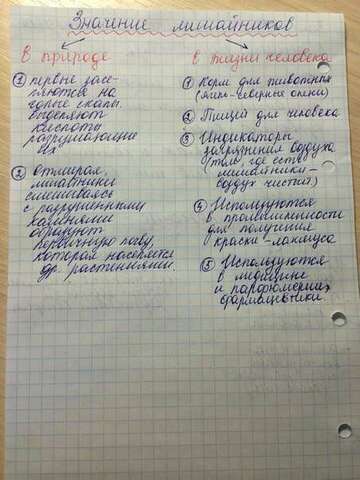 Значение лишайников
в природе
① первые засе-
ляются на
голые скалы.
выделяют
кислоты
разрушающие
их
② Отмирая,
лишайники
смешиваясь
с разрушенными
камнями
образуют
первичную почву,
которая населяется
др. растениями.
в жизни человека
① Корм для животных
(ягель-северные олени)
② Пищей для человека
③ Индикаторы
загрязнения воздуха
(там, где есть
лишайники-
воздух чистый)
④ Используются
в промышленности
для получения
краски-лакмуса
⑤ Используются
в медицине
и парфюмерии,
фармацевтики.